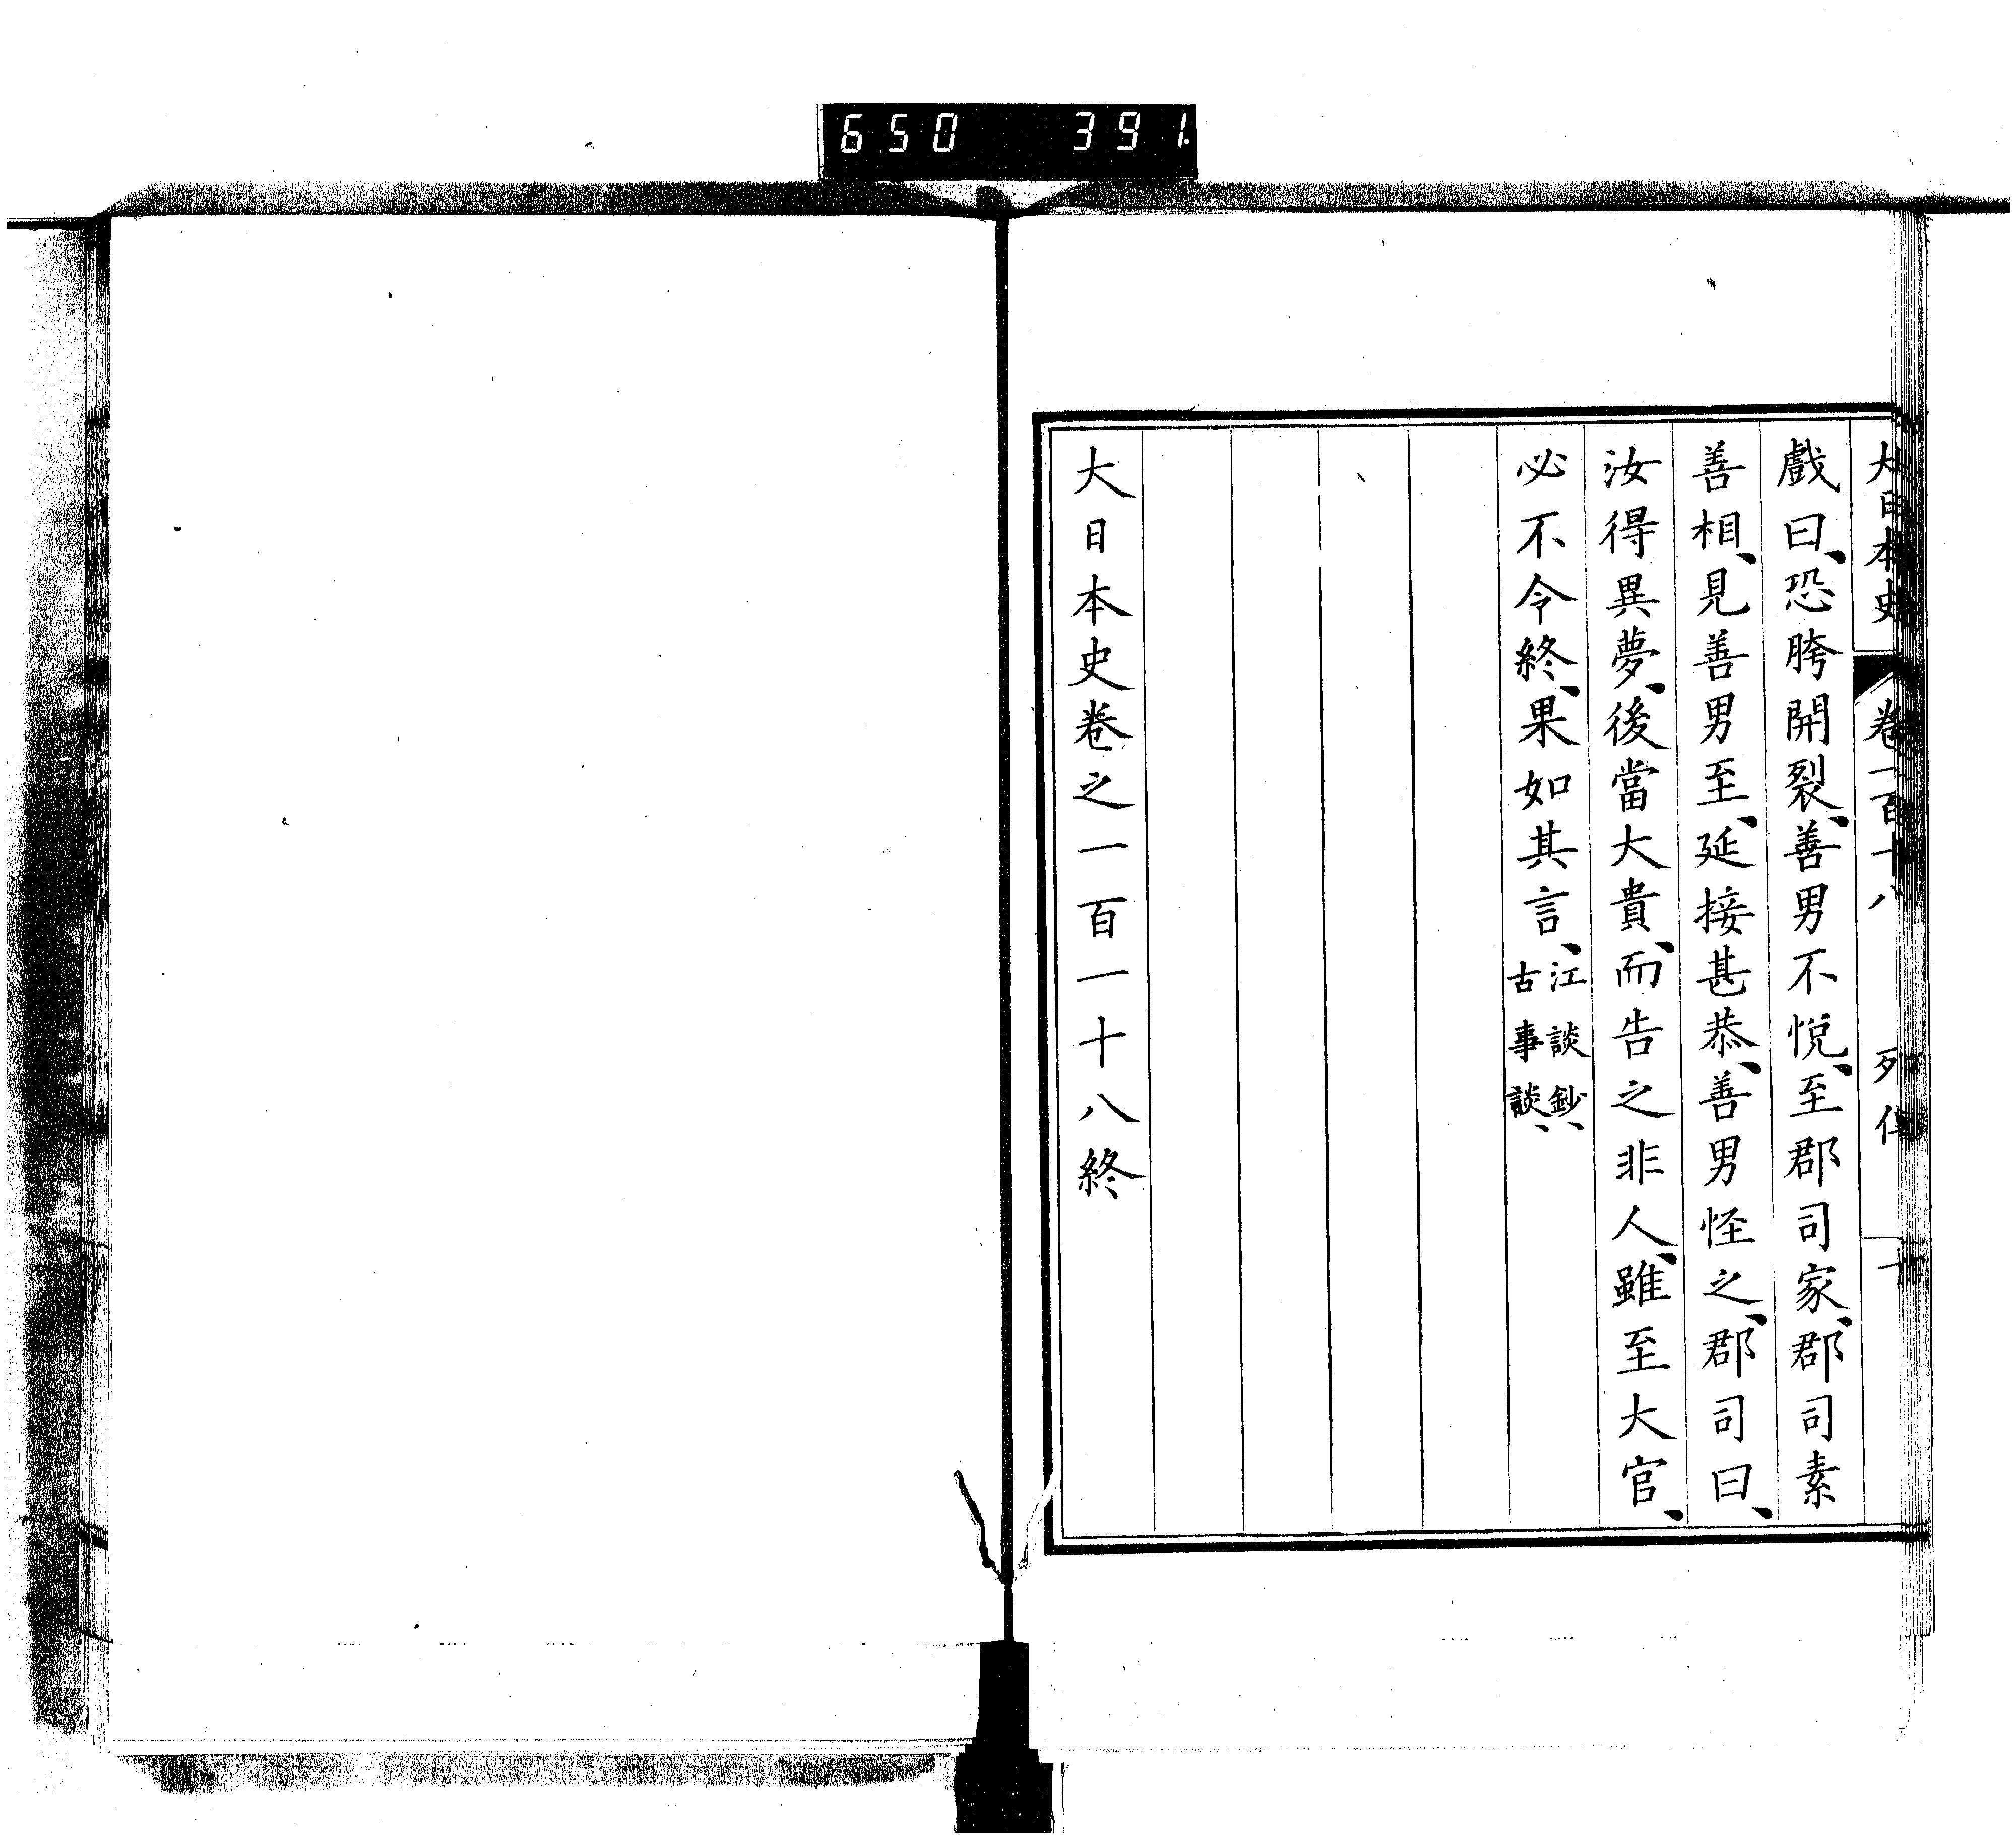 650 391.
大日本史 卷一百十八 列傳 十
戲曰、恐胯開裂、善男不悅、至郡司家、郡司素
善相、見善男至、延接甚恭、善男怪之、郡司曰、
汝得異夢、後當大貴、而告之非人、雖至大官、
必不令終、果如其言、江談鈔、古事談、
大日本史卷之一百一十八終